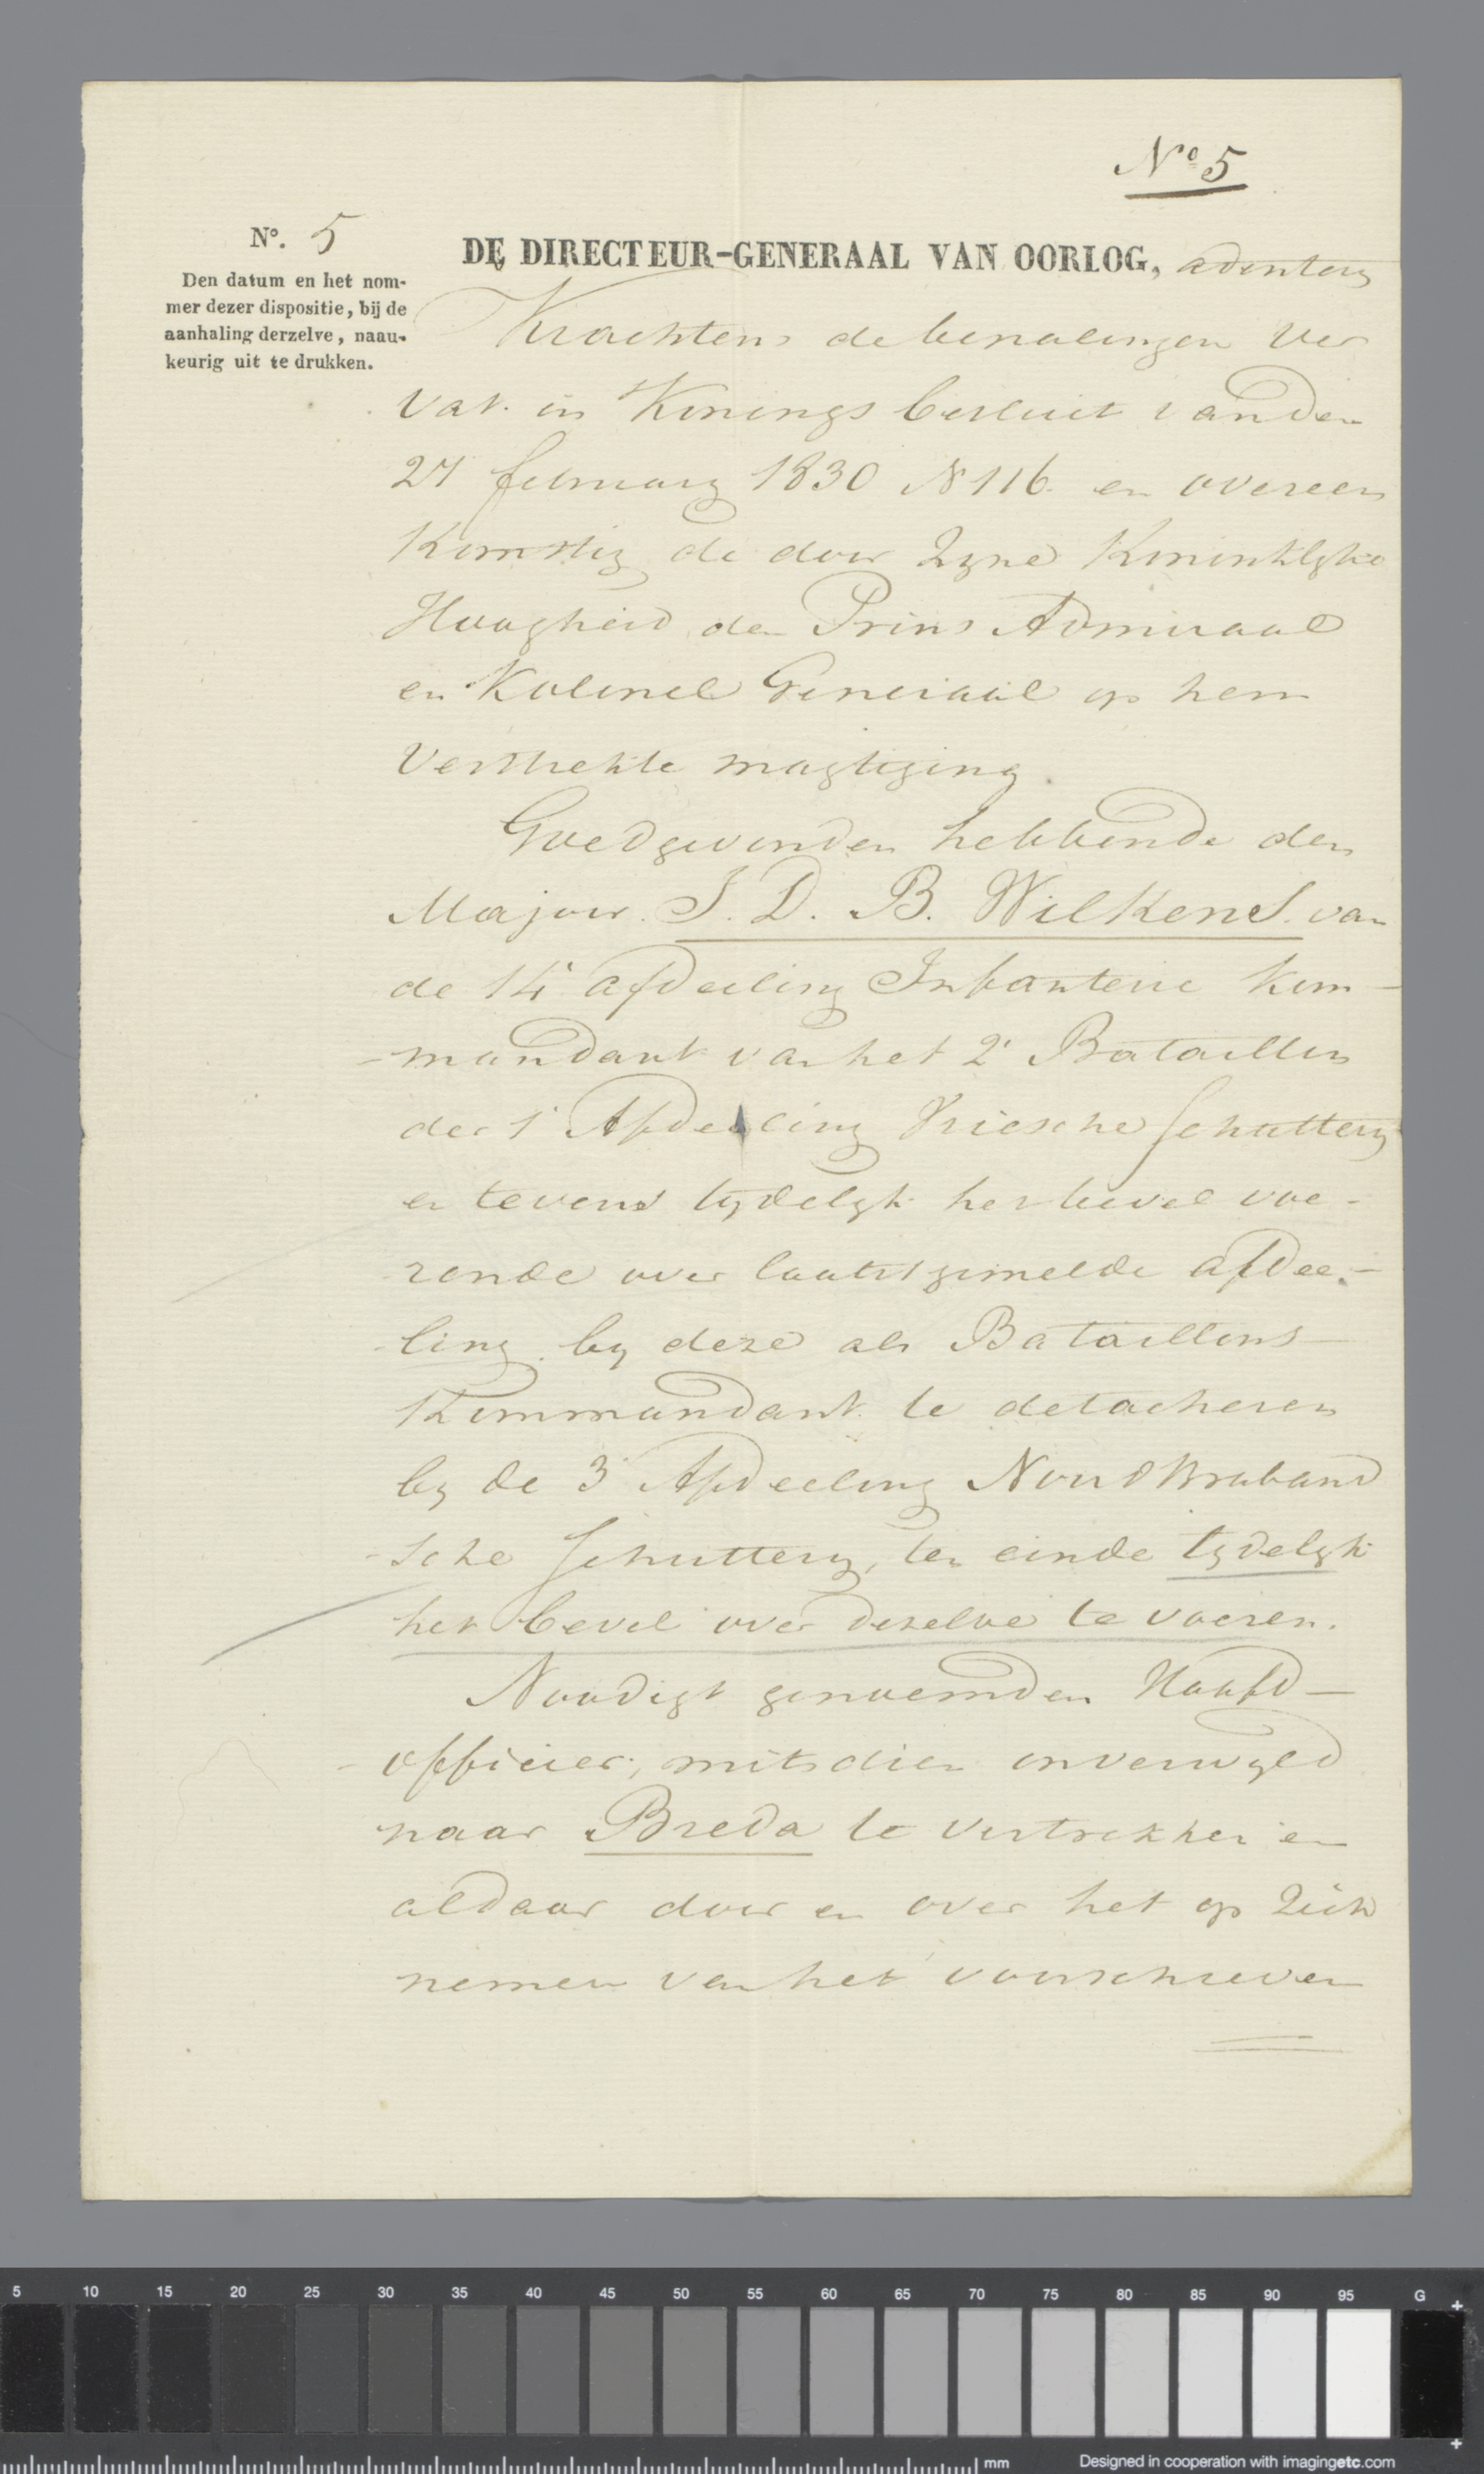 Nº 5
Nº. 5
Den datum en het nom-
mer dezer dispositie, bij de
aanhaling derzelve, naau-
keurig uit te drukken.
DE DIRECTEUR-GENERAAL VAN OORLOG, adinterim
Krachtens de bepalingen ver
vat in Konings besluit van den
27 february 1830 N 116 en overeen
Komstig de door Zyne Koninklyke
Hoogheid den Prins Admiraal
en Kolonel Generaal op hem
verstrekte magtiging.
Goedgevonden hebbende den
Majoor J. D. B. Wilkens van
de 14e afdeeling Infanterie Kom-
-mandant van het 2e Bataillon
der 1e Afdeeling Vriesche Schuttery
en tevens tydelyk het bevel voe-
rende over laatstgemelde afdee-
ling by deze als Bataillons
Kommandant te detacheren
by de 3e Afdeeling Noord Braband
-sche Schuttery, ten einde tydelyk
het bevel over dezelve te voeren.
Noodigt genoemden Hoofd-
officier, mitsdien onverwyld
naar Breda te vertrekken en
aldaar door en over het op zich
nemen van het voorschreven
5 10 15 20 25 30 35 40 45 50 55 60 65 70 75 80 85 90 95 G
mm Designed in cooperation with imagingetc.com